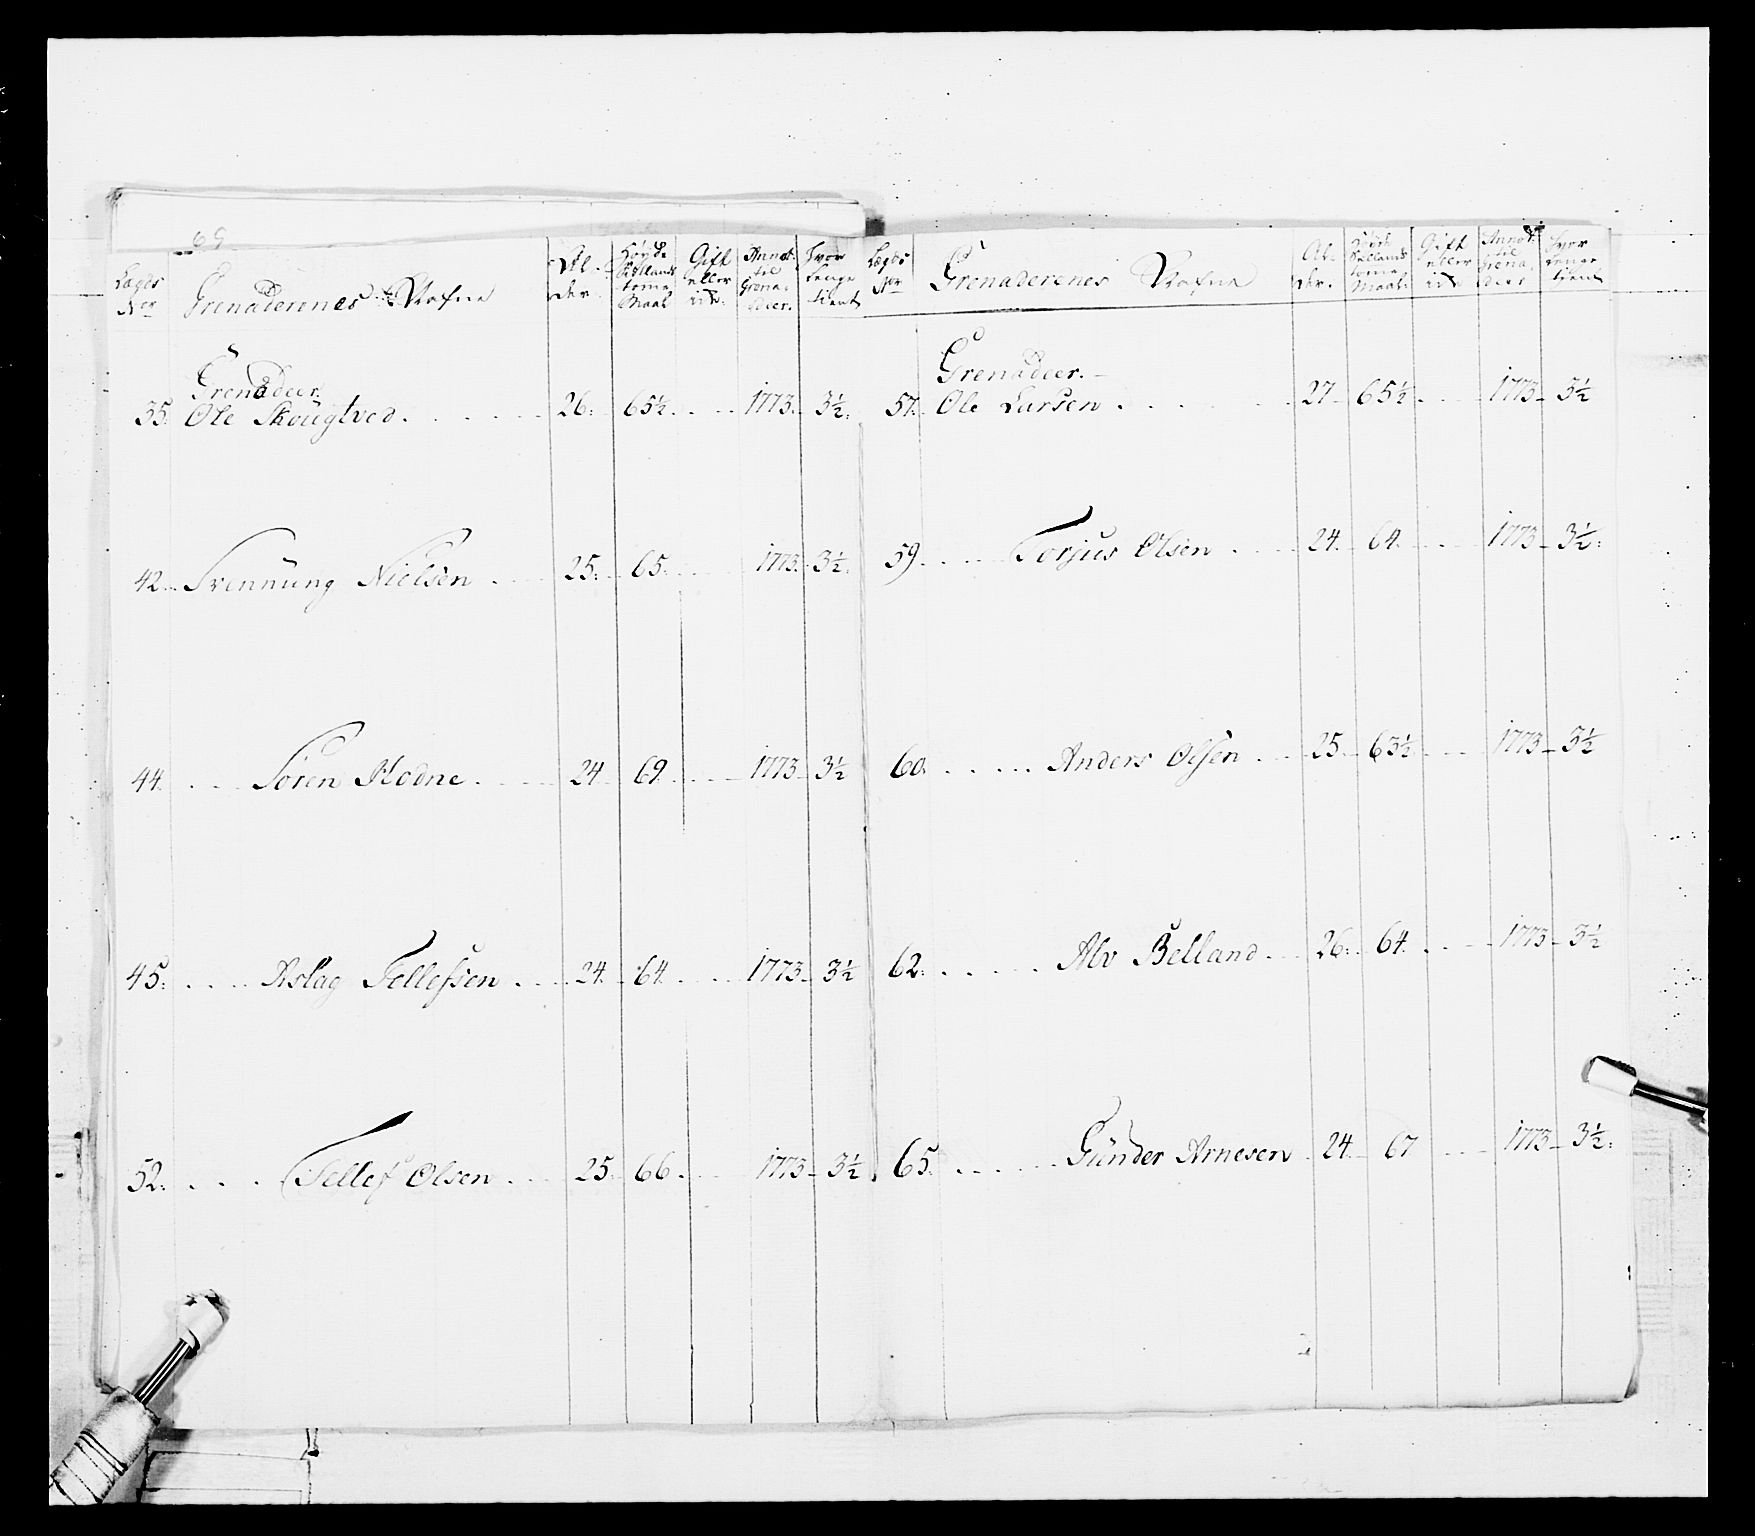 69
Lægds Ner | Grenaderenes Nafne | Al- der | Høyde Sællands tomme Maal | Gift eller ei | Annot: til Grena- deer. | Hvor Lenge tient
Grenadeer.
35. Ole Skougtved. 26. 65½. 1773. 3½.
42. Svennüng Nielsen 25. 65. 1773. 3½.
44. Søren Hodne 24 69 1773 3½
45. Aslag Tellefsen 24. 64. 1773 3½
52. Tellef Olsen 25. 66. 1773 3½
Lægds Ner | Grenaderenes Nafne | Al- der. | Høyde Sællands tomme Maal | Gift eller ei | Annot: til Grena- deer | Hvor Lenge tient
Grenadeer.
57. Ole Larsen 27 65½ 1773 3½
59. Torjus Olsen 24. 64. 1773 3½.
60. Anders Olsen 25. 63½ 1773 3½
62. Alv Belland 26. 64. 1773 3½
65. Günder Arnesen 24. 67 1773 3½.